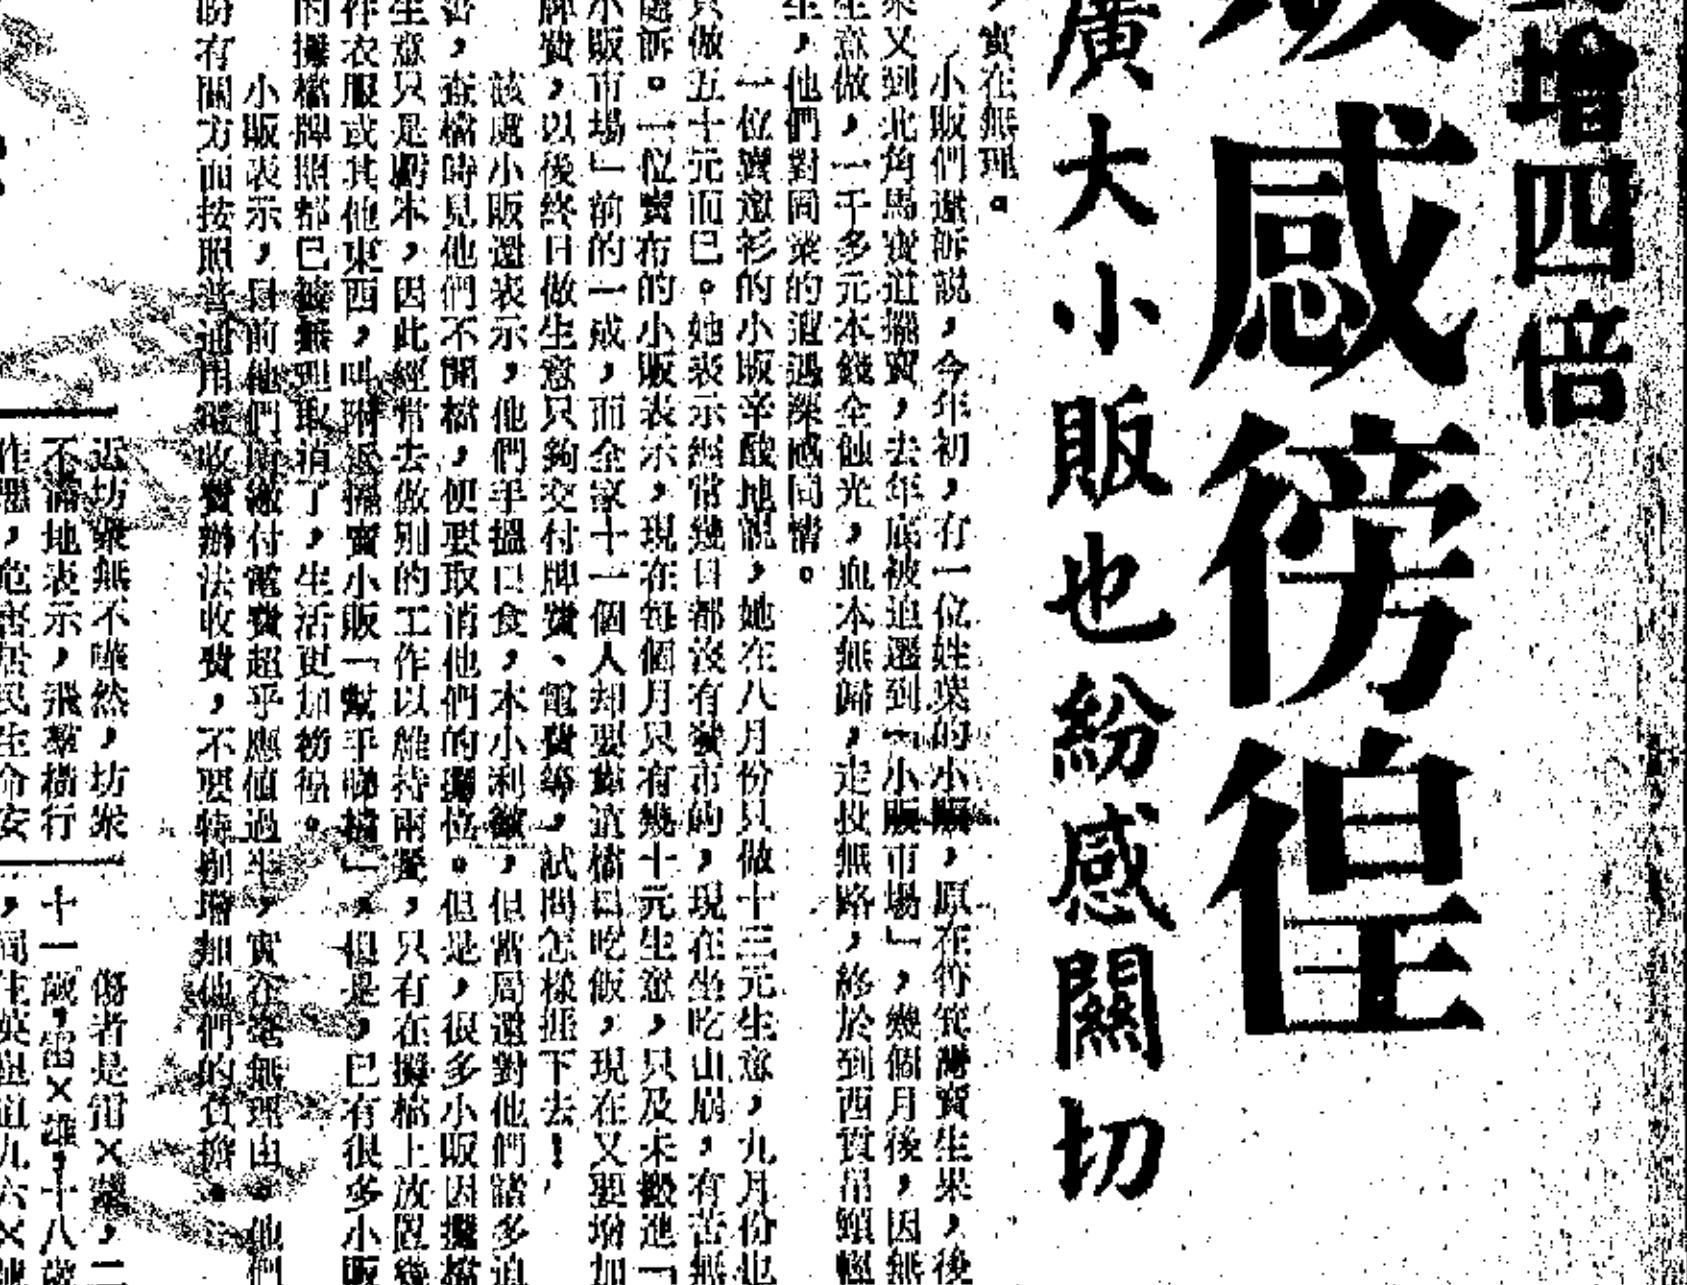 增四倍
感徬徨
廣大小販也紛感關切
，實在無理。
小販們還訴說，今年初，有一位姓葉的小販，原在筲箕灣賣生果，後
來又到北角馬寶道擺賣，去年底被迫遷到「小販市場」，幾個月後，因無
生意做，一千多元本錢全蝕光，血本無歸，走投無路，終於到西貢吊頸輕
生，他們對同業的遭遇深感同情。
一位賣恤衫的小販辛酸地說，她在八月份只做十三元生意，九月份也
只做五十元而已。她表示經常幾日都沒有發市的，現在坐吃山崩，有苦無
處訴。一位賣布的小販表示，現在每個月只有幾十元生意，只及未搬進「
小販市場」前的一成，而全家十一個人却要靠這檔口吃飯，現在又要增加
牌費，以後終日做生意只夠交付牌費、電費等，試問怎樣捱下去！
該處小販還表示，他們手搵口食，本小利微，但當局還對他們諸多迫
害，查檔時見他們不開檔，便要取消他們的攤位。但是，很多小販因攤檔
生意只是虧本，因此經常去做別的工作以維持兩餐，只有在攤檔上放置幾
件衣服或其他東西，叫附近擺賣小販「幫手睇檔」。但是，已有很多小販
的攤檔牌照都已被無理取消了，生活更加徬徨。
小販表示，目前他們所繳付電費超乎應值過半，實在毫無理由。他們
盼有關方面按照普通用電收費辦法收費，不要特別增加他們的負擔。
近坊衆無不嘩然，坊衆
不滿地表示，飛羣橫行
作惡，危害居民生命安
傷者是雷×
十一歲，雷×雄，十八歲
，同住英皇道九六×號